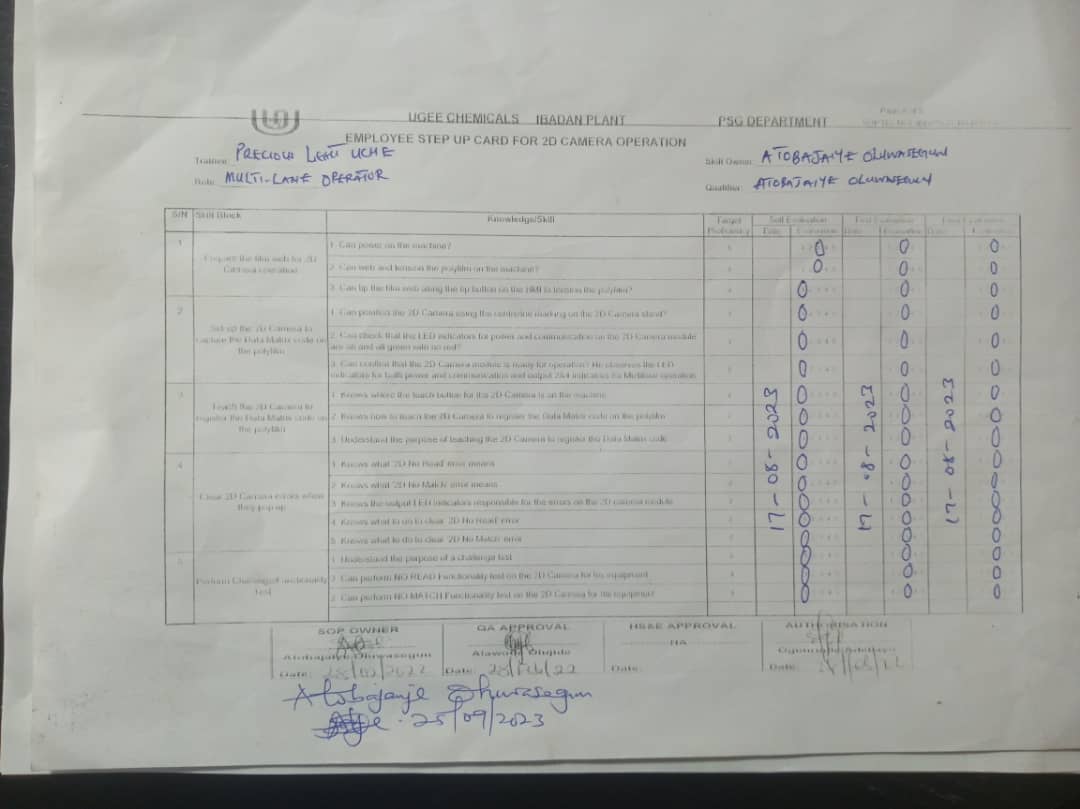 UGEE CHEMICALS IBADAN PLANT
PSG DEPARTMENT
EMPLOYEE STEP UP CARD FOR 2D CAMERA OPERATION
Trainee: PRECIOUS UCHE
Skill Owner: ATOBAJAIYE OLUWASEGUN
Role: MULTI-LANE OPERATOR
Qualifier: ATOBAJAIYE OLUWASEGUN
S/N Skill Block Knowledge/Skill Target Proficiency Self Evaluation
Date Evaluation Date Evaluation Date Evaluation
1 Prepare the film web for 2D Camera operation
1. Can power on the machine?
2. Can web and tension the polyfilm on the machine?
3. Can tip the film web using the tip button on the HMI to tension the polyfilm?
2 Set up the 2D Camera to capture the Data Matrix code on the polyfilm
1. Can position the 2D Camera using the centreline marking on the 2D Camera stand?
2. Can check that the LED indicators for power and communication on the 2D Camera module are on and all green with no red?
3. Can confirm that the 2D Camera module is ready for operation? He observes the LED indicators for both power and communication and output
3 Teach the 2D Camera to register the Data Matrix code on the polyfilm
1. Knows where the teach button for the 2D Camera is on the machine
2. Knows how to teach the 2D Camera to register the Data Matrix code on the polyfilm
3. Understand the purpose of teaching the 2D Camera to register the Data Matrix code
4 Clear 2D Camera errors when they pop up
1. Knows what '2D No Read' error means
2. Knows what '2D No Match' error means
3. Knows the output LED indicators responsible for the errors on the 2D camera module
4. Knows what to do to clear '2D No Read' error
5. Knows what to do to clear '2D No Match' error
5 Perform Challenge/Functionality Test
1. Understand the purpose of a challenge test
2. Can perform NO READ Functionality test on the 2D Camera for his equipment
3. Can perform NO MATCH Functionality test on the 2D Camera for his equipment
17-08-2023
17-08-2023
17-08-2023
SOP OWNER QA APPROVAL HS&E APPROVAL AUTHORISATION
Atobajaiye Oluwasegun NA
Date: 28/02/2022 Date: 28/Feb/22 Date: Date:
Atobajaiye Oluwasegun
25/09/2023